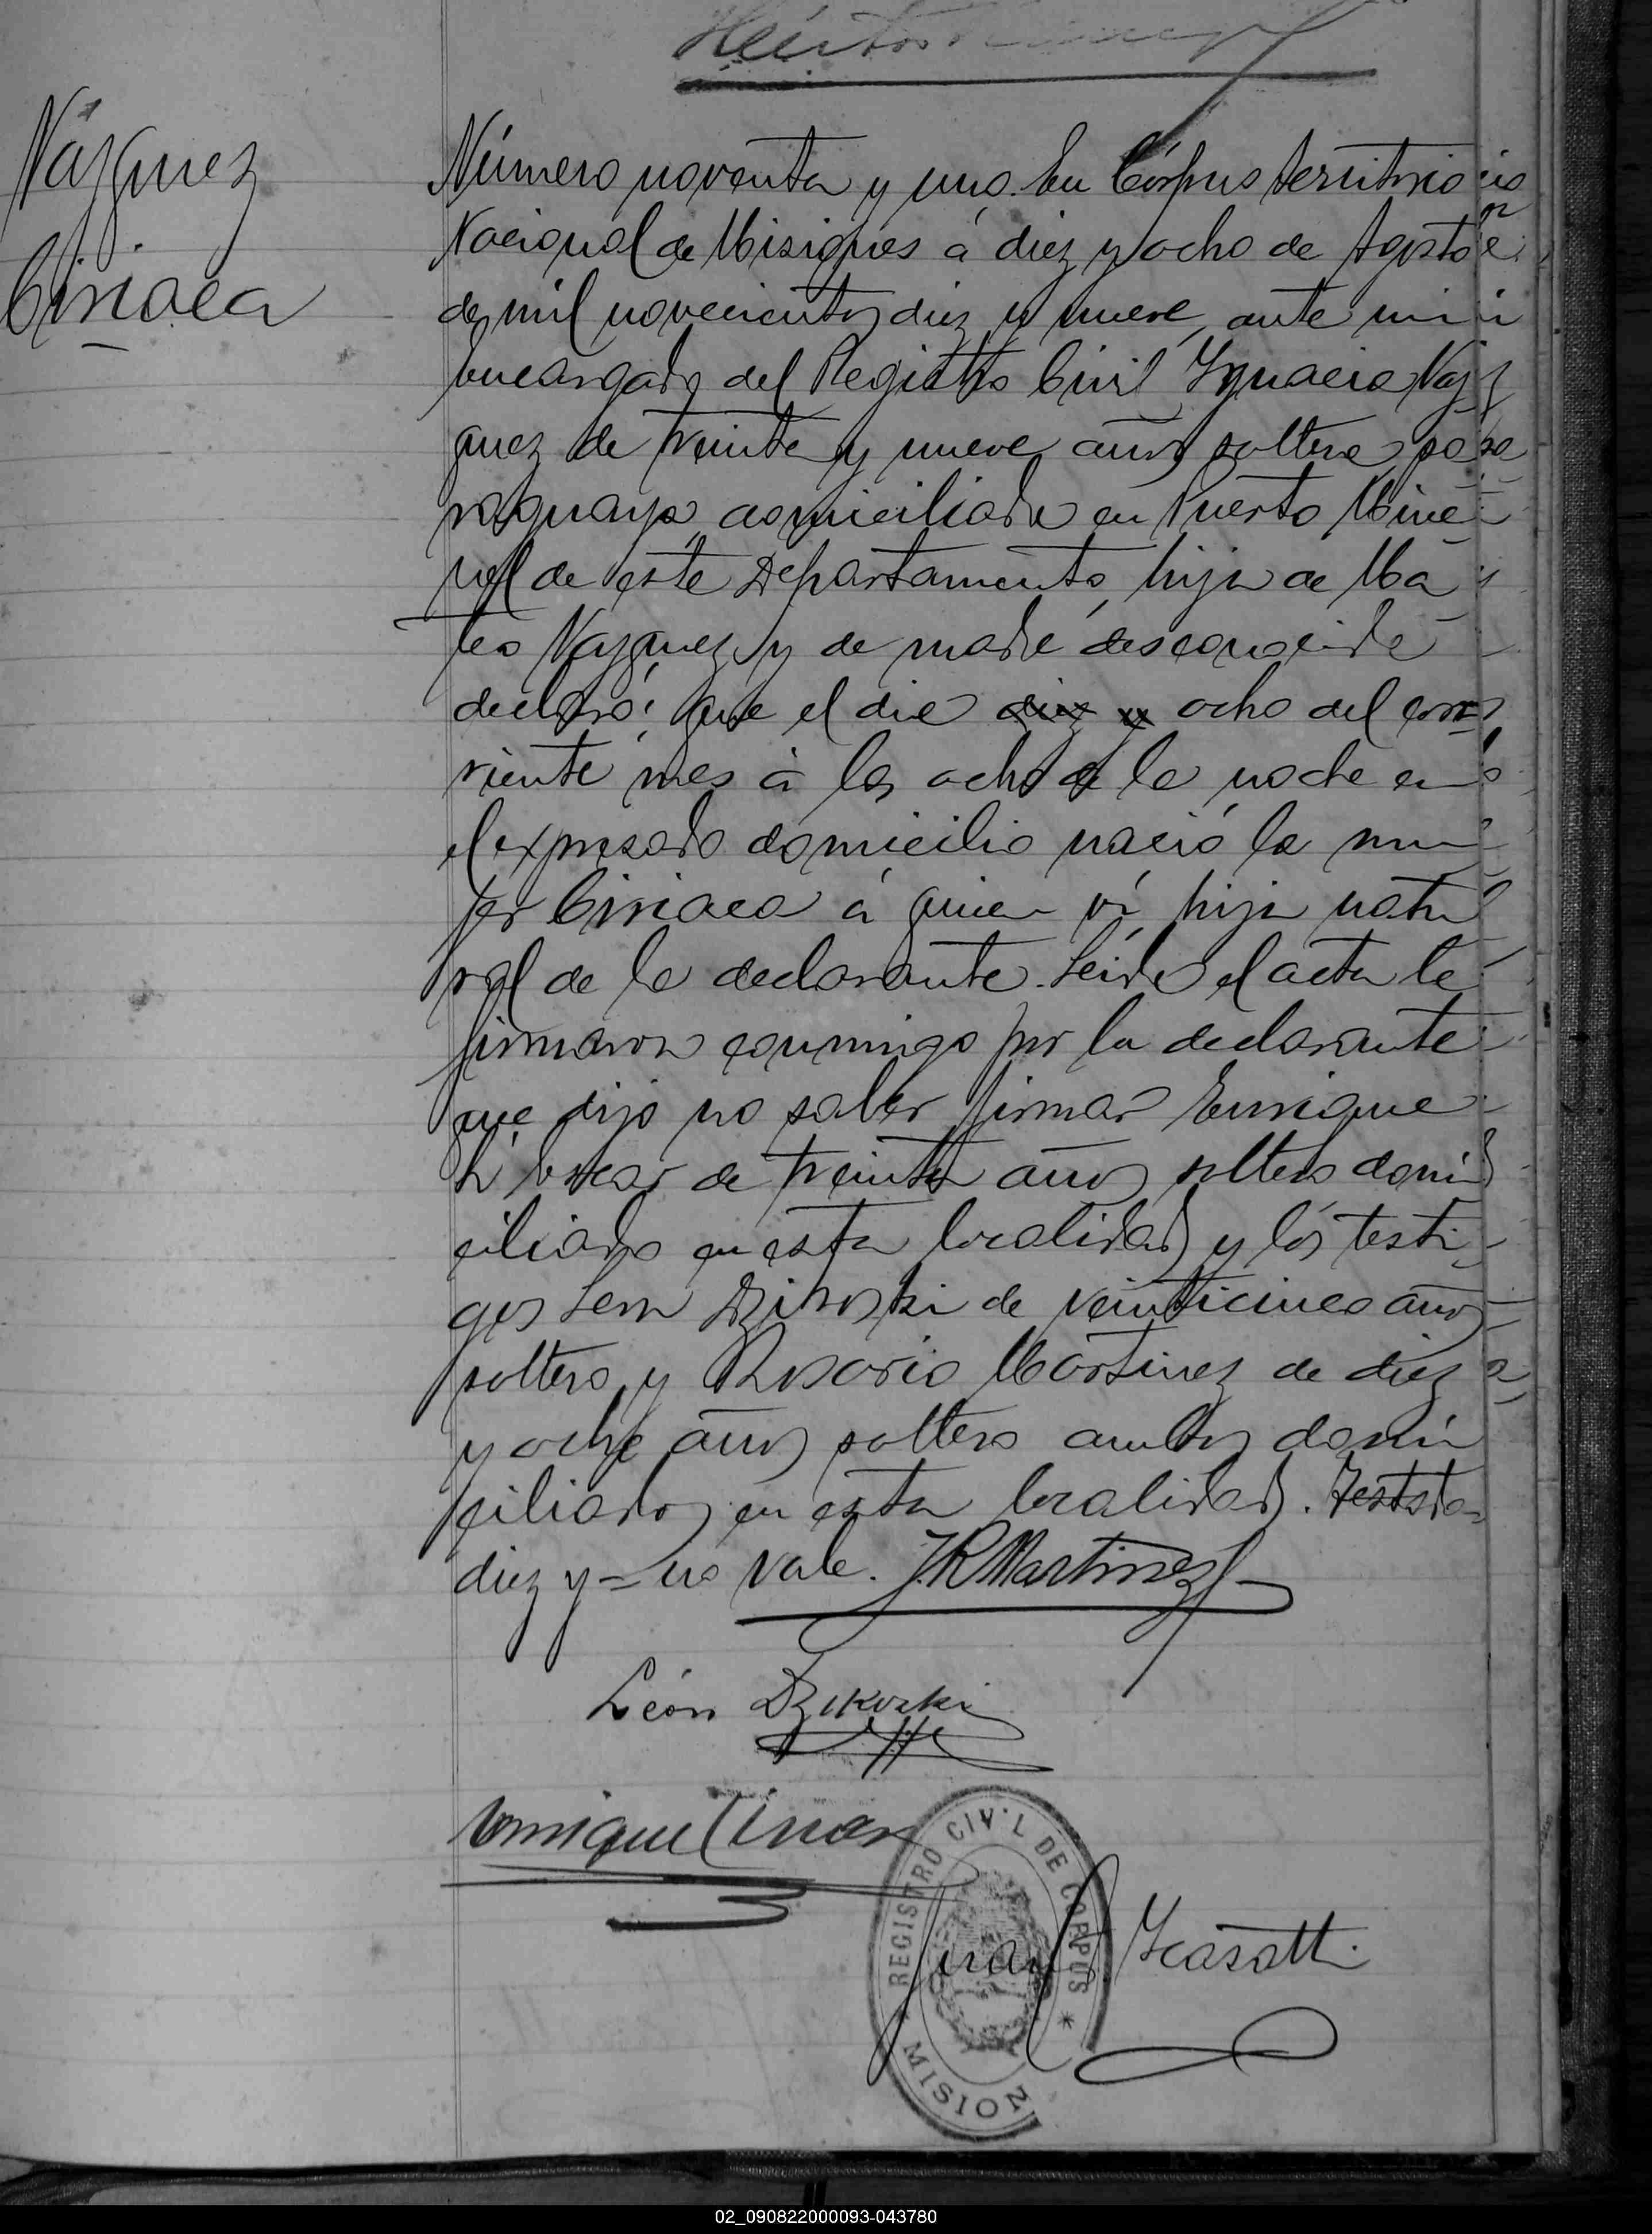 Vázquez
Ciriaca
Número noventa y uno. En Córpus territorio
Nacional de Misiones á diez y ocho de Agosto
de mil novecientos diez y nueve, ante mi
Encargado del Registro Civil Ygnacia Vaz
quez de treinta y nueve años soltera pa
raguaya, domiciliada en Puerto Mine
ral de este Departamento, hija de Ma
teo Vazquez y de madre desconocida
declaró: que el dia diez y ocho del cor
riente mes á las ocho de la noche en
el expresado domicilio nació la mu
jer Ciriaca á quien ví, hija natu
ral de la declarante. Leida el acta la
firmaron conmigo por la declarante
que dijo no saber firmar Enrique
de treinta años soltero domi
ciliado en esta localidad y los testi
gos Leon Dzikoski de veinticinco años
soltero y Rosario Martinez de diez
y ocho años soltero ambos domi
ciliados en esta localidad. Testado
diez y = no vale. J.R Martinez
León Dzikoski
Enrique
REGISTRO CIVIL DE CORPUS * MISION
Juan